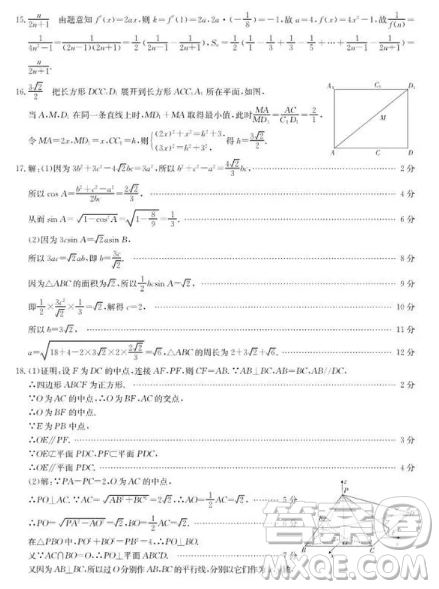 15. n/(2n+1)  由题意知 f′(x)=2ax,则 k=f′(1)=2a,2a·(-1/8)=-1,故 a=4,f(x)=4x²-1,故 1/f(n)=
1/(4n²-1)=1/((2n-1)(2n+1))=1/2(1/(2n-1)-1/(2n+1)),Sₙ=1/2(1-1/3+1/3-1/5+…+1/(2n-1)-1/(2n+1))=
n/(2n+1).
16. 3√2/2  把长方形 DCC₁D₁ 展开到长方形 ACC₁A₁ 所在平面,如图,
当 A,M,D₁ 在同一条直线上时,MD₁+MA 取得最小值,此时 MA/MD₁=AC/C₁D₁=2/1,
令 MA=2x,MD₁=x,CC₁=h,则
A₁ C₁ D₁
M
A C D
17. 解:(1)因为 3b²+3c²-4√2bc=3a²,所以 b²+c²-a²=4√2/3 bc, 2 分
所以 cos A=(b²+c²-a²)/2bc=2√2/3, 4 分
从而 sin A=√(1-cos²A)=√(1-8/9)=1/3. 6 分
(2)因为 3csin A=√2asin B,
所以 3ac=√2ab,即 b=3c/√2. 8 分
因为△ABC 的面积为√2,所以 1/2 bcsin A=√2, 9 分
即 1/2×3c²/√2×1/3=√2,解得 c=2, 10 分
所以 b=3√2, 11 分
a=√(18+4-2×3√2×2×2√2/3)=√6,△ABC 的周长为 2+3√2+√6. 12 分
18. (1)证明:设 F 为 DC 的中点,连接 AF,PF,则 CF=AB.∵AB⊥BC,AB=BC,AB//DC,
∴四边形 ABCF 为正方形. 2 分
∵O 为 AC 的中点,∴O 为 BF,AC 的交点,
∴O 为 BF 的中点.
∵E 为 PB 中点,
∴OE∥PF. 3 分
∵OE⊄平面 PDC,PF⊂平面 PDC,
∴OE∥平面 PDC. 4 分
(2)解:∵PA=PC=2,O 为 AC 的中点,
∴PO⊥AC.∵AC=√(AB²+BC²)=2√2,∴AO=1/2AC=√2, 5 分
∴PO=√(PA²-AO²)=√2,BO=1/2AC=√2.
∴PO⊥BO.
又∵AC∩BO=O,∴PO⊥平面 ABCD.
又因为 AB⊥BC,所以过 O 分别作 AB,BC 的平行线,分别以它们作为
答案圈